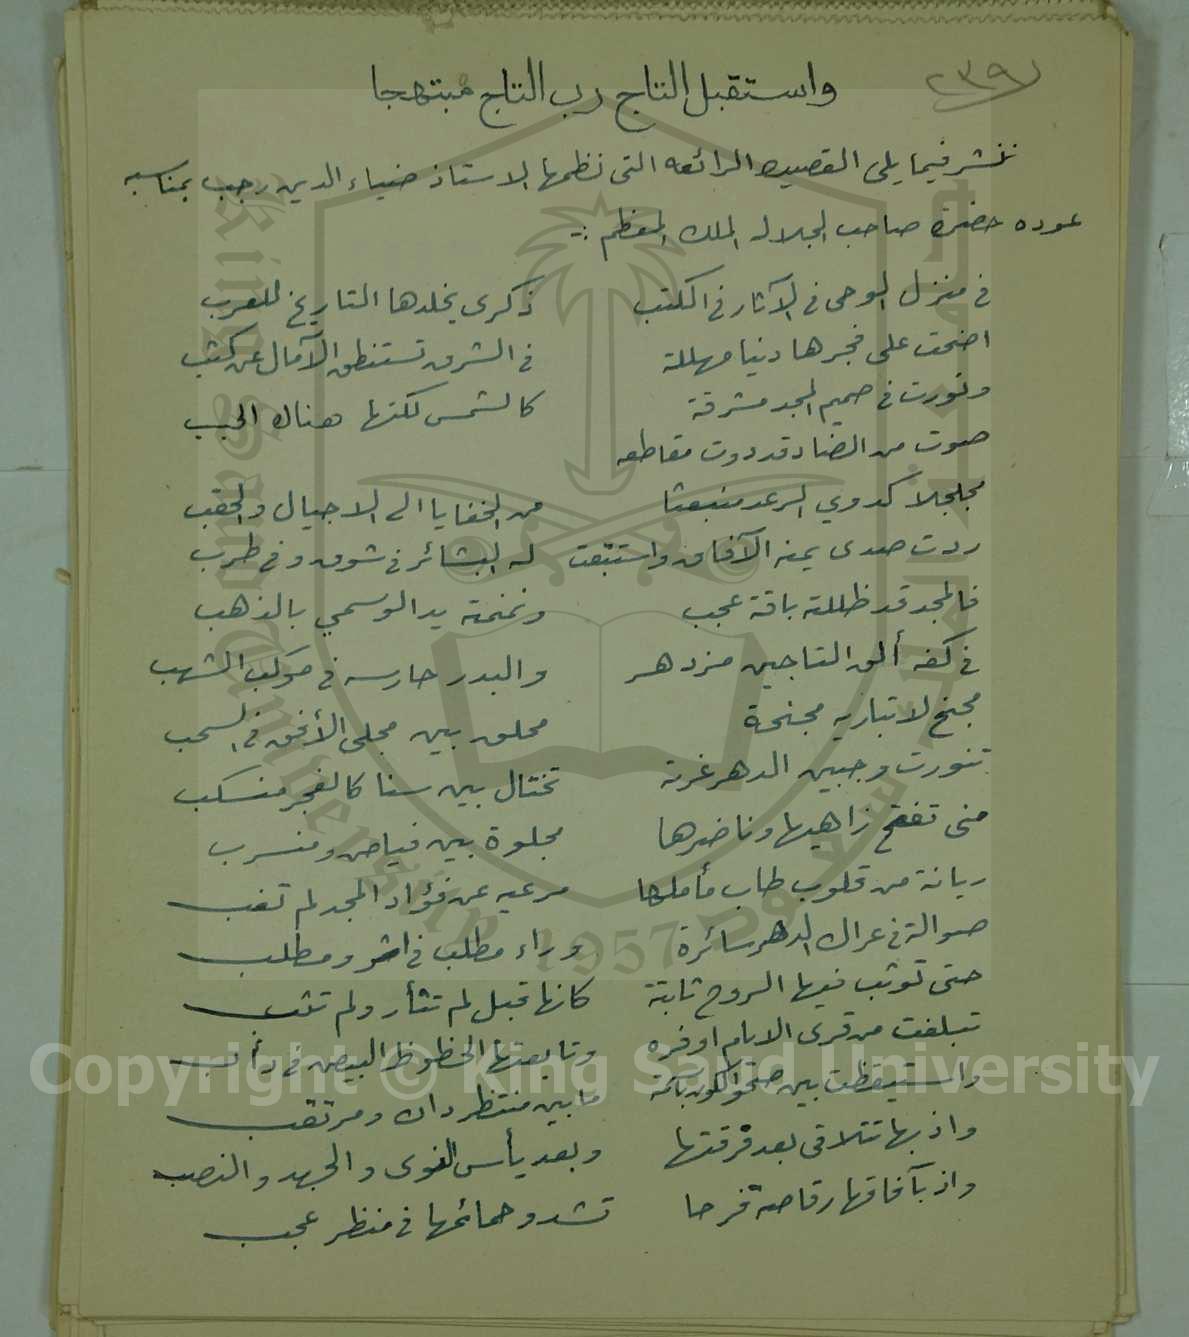 ٢٣٩
واستقبل التاج رب التاج مبتهجا
ننشر فيما يلى القصيده الرائعه التى نظمها الاستاذ ضياء الدين رجب بمناسبه
عوده حضرة صاحب الجلاله الملك المعظم :-
فى منزل الوحى فى الآثار فى الكتب ذكرى يخلدها التاريخ للعرب
اضحت على فجرها دنيا مهللة فى الشرق تستنطق الآمال عن كثب
ونورت فى صميم المجد مشرقة كالشمس لكنها هناك الحجب
صوت من الضاد قد دوت مقاطعه
مجلجلا كدوي الرعد منبعثا من الخفايا الى الاجيال والحقب
ردت صدى يمنه الآفاق واستبقت له البشائر فى شوق وفى طرب
فالمجد قد ظللته باقة عجب ونمنمته يد الوسمي بالذهب
فى كفه ألق التاجين مزدهر والبدر حارسه فى موكب الشهب
مجنح لا تباريه مجنحة محلق بين مجلى الأفق فى السحب
تنورت وجبين الدهر غرته تختال بين سنا كالفجر منسكب
منى تفتح زاهيها وناضرها مجلوة بين فياض ومنسرب
ريانة من قلوب طاب مأملها مرعيه عن فؤاد المجد لم تغب
صوالة فى عراك الدهر سائرة وراء مطلب فى اثر ومطلب
حتى توثب فيها الروح ثابتة كانها قبل لم تثأر ولم تثب
تبلغت من قرى الايام اوفره وتابعتها الحظوظ البيض فى دأب
واستيقظت بين صحو الكون باسمة ما بين منتظر دان ومرتقب
واذ بها تتلاقى بعد فرقتها وبعد يأس القوى والجهد والنصب
واذ بآفاقها رقاصة فرحا تشدو حمائمها فى منظر عجب
Copyright © King Saud University
King Saud University
1957
جامعة الملك سعود